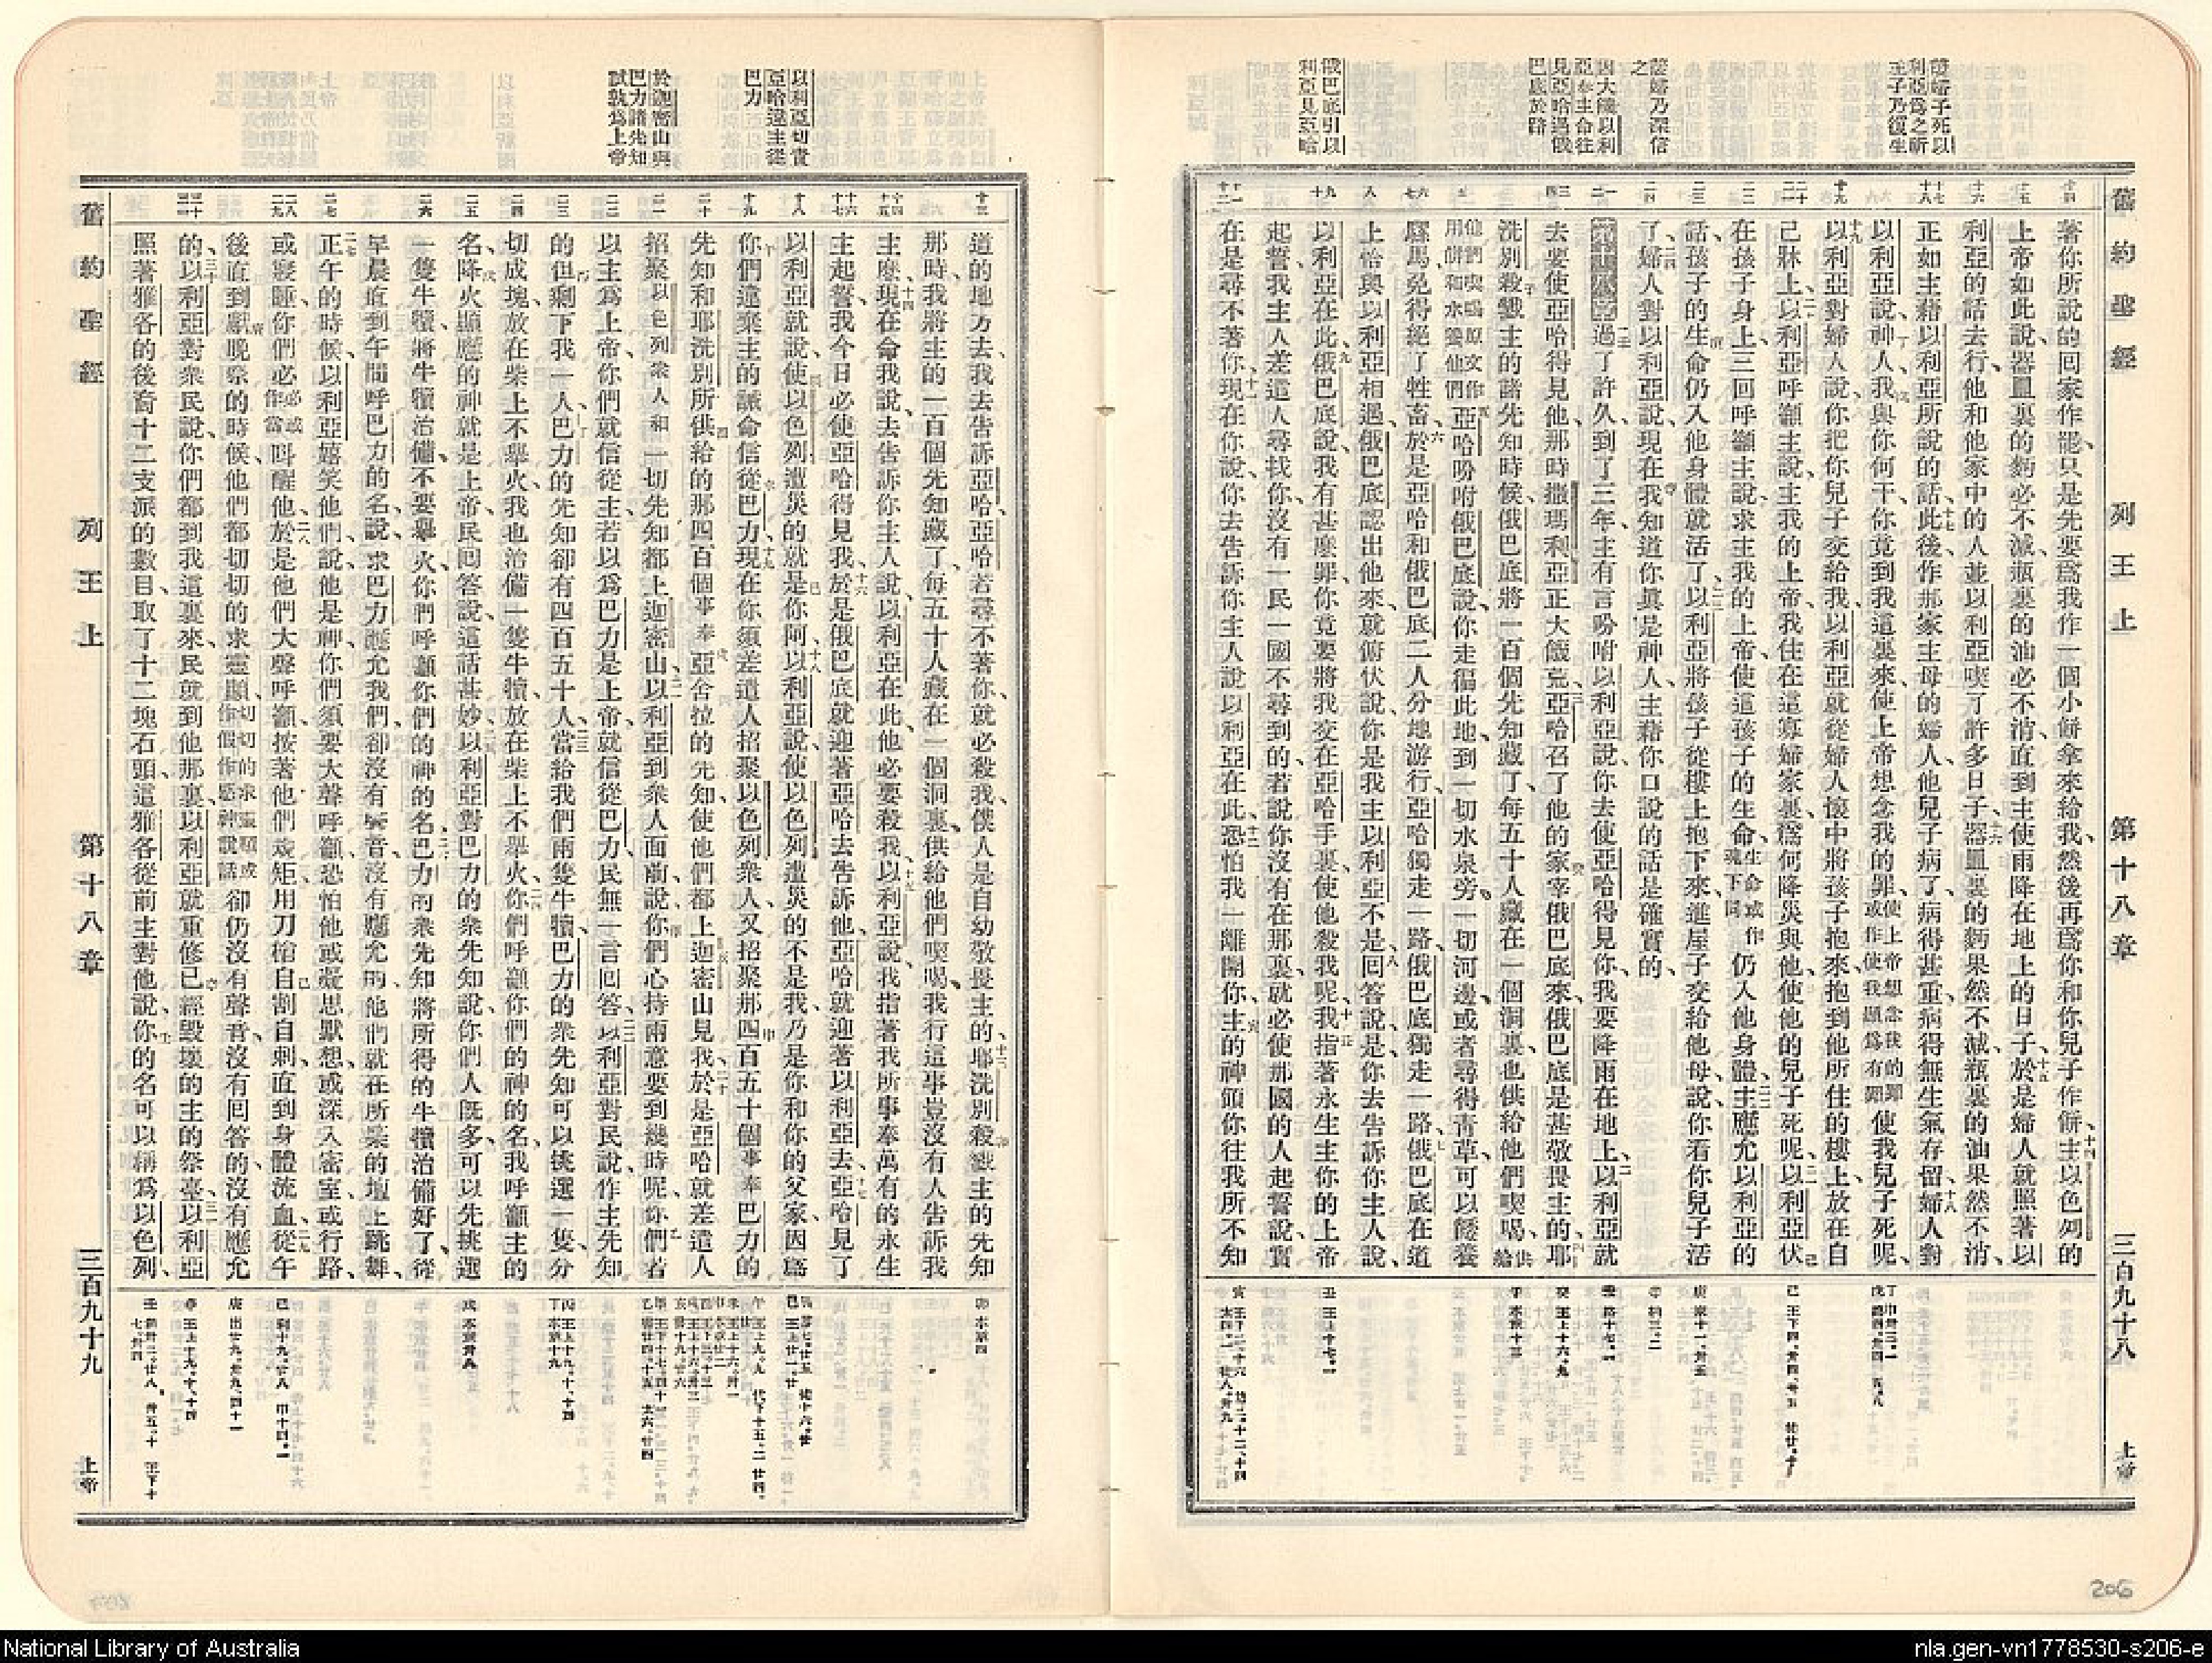 舊約聖經 列王上 第十八章 三百九十八 上帝
嫠婦子死以
利亞爲之祈
主子乃復生
嫠婦乃深信
之
因大饑以利
亞奉主命往
見亞哈遇俄
巴底於路
俄巴底引以
利亞見亞哈
著你所說的回家作罷、只是先要爲我作一個小餅拿來給我、然後再爲你和你兒子作餅、十四主以色列的
上帝如此說、器皿裏的麪必不減、瓶裏的油必不消、直到主使雨降在地上的日子、十五於是婦人就照著以
利亞的話去行、他和他家中的人並以利亞喫了許多日子、十六器皿裏的麪果然不減、瓶裏的油果然不消、
正如主藉以利亞所說的話、十七此後作那家主母的婦人、他兒子病了、病得甚重、病得無生氣存留、十八婦人對
以利亞說、神人、我與你何干、你竟到我這裏來、使上帝想念我的罪、使上帝想念我的罪或作使我顯爲有罪使我兒子死呢、
十九以利亞對婦人說、你把你兒子交給我、以利亞就從婦人懷中將孩子抱來、抱到他所住的樓上、放在自
己牀上、二十以利亞呼籲主說、主我的上帝、我住在這寡婦家裏、爲何降災與他、使他的兒子死呢、二一以利亞伏
在孩子身上、三回呼籲主說、求主我的上帝、使這孩子的生命、生命或作魂下同仍入他身體、二二主應允以利亞的
話、孩子的生命仍入他身體、就活了、二三以利亞將孩子從樓上抱下來、進屋子交給他母、說、你看你兒子活
了、二四婦人對以利亞說、現在我知道你眞是神人、主藉你口說的話是確實的、
第十八章 一過了許久、到了三年、主有言吩咐以利亞說、你去使亞哈得見你、我要降雨在地上、二以利亞就
去要使亞哈得見他、那時撒瑪利亞正大饑荒、三亞哈召了他的家宰俄巴底來、俄巴底是甚敬畏主的、四耶
洗別殺戮主的諸先知時候、俄巴底將一百個先知藏了、每五十人藏在一個洞裏、也供給他們喫喝、供給
他們喫喝原文作用餅和水養他們五亞哈吩咐俄巴底說、你走徧此地、到一切水泉旁、一切河邊、或者尋得青草、可以餧養
騾馬、免得絕了牲畜、六於是亞哈和俄巴底二人分地游行、亞哈獨走一路、俄巴底獨走一路、七俄巴底在道
上恰與以利亞相遇、俄巴底認出他來、就俯伏說、你是我主以利亞不是、八回答說、是、你去告訴你主人說、
以利亞在此、九俄巴底說、我有甚麼罪、你竟要將我交在亞哈手裏、使他殺我呢、十我指著永生主你的上帝
起誓、我主人差遣人尋找你、沒有一民一國不尋到的、若說你沒有在那裏、就必使那國的人起誓說、實
在是尋不著你、十一現在你說、你去告訴你主人說、以利亞在此、十二恐怕我一離開你、主的神領你往我所不知
丑 王上十七。一
癸 王上十六。九
舊約聖經 列王上 第十八章 三百九十九 上帝
以利亞切責
亞哈違主從
巴力
於迦密山與
巴力諸先知
試孰爲上帝
道的地方去、我去告訴亞哈、亞哈若尋不著你、就必殺我、僕人是自幼敬畏主的、十三耶洗別殺戮主的先知
那時、我將主的一百個先知藏了、每五十人藏在一個洞裏、供給他們喫喝、我行這事、豈沒有人告訴我
主麼、十四現在命我說、去告訴你主人說、以利亞在此、他必要殺我、十五以利亞說、我指著我所事奉萬有的永生
主起誓、我今日必使亞哈得見我、十六於是俄巴底就迎著亞哈去告訴他、亞哈就迎著以利亞去、十七亞哈見了
以利亞就說、使以色列遭災的就是你阿、十八以利亞說、使以色列遭災的不是我、乃是你和你的父家、因爲
你們違棄主的誡命、信從巴力、十九現在你須差遣人招聚以色列衆人、又招聚那四百五十個事奉巴力的
先知、和耶洗別所供給的那四百個事奉亞舍拉的先知、使他們都上迦密山見我、二十於是亞哈就差遣人
招聚以色列衆人和一切先知都上迦密山、二一以利亞到衆人面前說、你們心持兩意要到幾時呢、你們若
以主爲上帝、你們就信從主、若以爲巴力是上帝、就信從巴力、民無一言回答、二二以利亞對民說、作主先知
的但剩下我一人、巴力的先知卻有四百五十人、二三當給我們兩隻牛犢、巴力的衆先知可以挑選一隻、分
切成塊、放在柴上、不舉火、我也治備一隻牛犢、放在柴上、不舉火、二四你們呼籲你們的神的名、我呼籲主的
名、降火顯應的神就是上帝、民回答說、這話甚妙、二五以利亞對巴力的衆先知說、你們人旣多、可以先挑選
一隻牛犢、將牛犢治備、不要舉火、你們呼籲你們的神的名、二六巴力的衆先知將所得的牛犢治備好了、從
早晨直到午間呼巴力的名、說、求巴力應允我們、卻沒有聲音、沒有應允的、他們就在所築的壇上跳舞、
二七正午的時候、以利亞嬉笑他們、說、他是神、你們須要大聲呼籲、恐怕他或凝思默想、或深入密室、或行路、
或寢睡、你們必必或作當呌醒他、二八於是他們大聲呼籲、按著他們規矩、用刀槍自割自刺、直到身體流血、二九從午
後直到獻晚祭的時候、他們都切切的求靈顯、切切的求靈顯或作假作感神說話卻仍沒有聲音、沒有回答的、沒有應允
的、三十以利亞對衆民說、你們都到我這裏來、民就到他那裏、以利亞就重修已經毀壞的主的祭臺、三一以利亞
照著雅各的後裔十二支派的數目、取了十二塊石頭、這雅各從前主對他說、你的名可以稱爲以色列、
206
National Library of Australia
nla.gen-vn1778530-s206-e